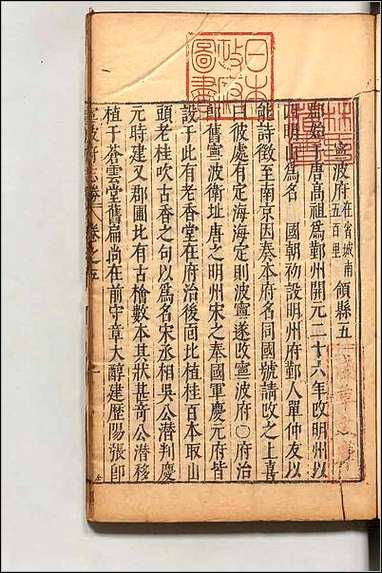 日本
政府
圖書
寧波府在省城南五百里領縣五
郡始于唐高祖爲鄞州開元二十六年改明州以
四明山爲名　國朝初設明州府鄞人單仲友以
能詩徵至南京因奏本府名同國號請改之上喜
曰彼處有定海海定則波寧遂改寧波府〇府治
舊寧波衛址唐之明州宋之奉國軍慶元府皆
設于此有老香堂在府治後面比植桂百本取山
頭老桂吹古香之句以爲名宋丞相吳公潜判慶
元時建又郡圃比有古檜數本其狀甚奇公潜移
植于蒼雲堂舊扁尚在前守章大醇建歷陽張即
波府志勝 卷之五